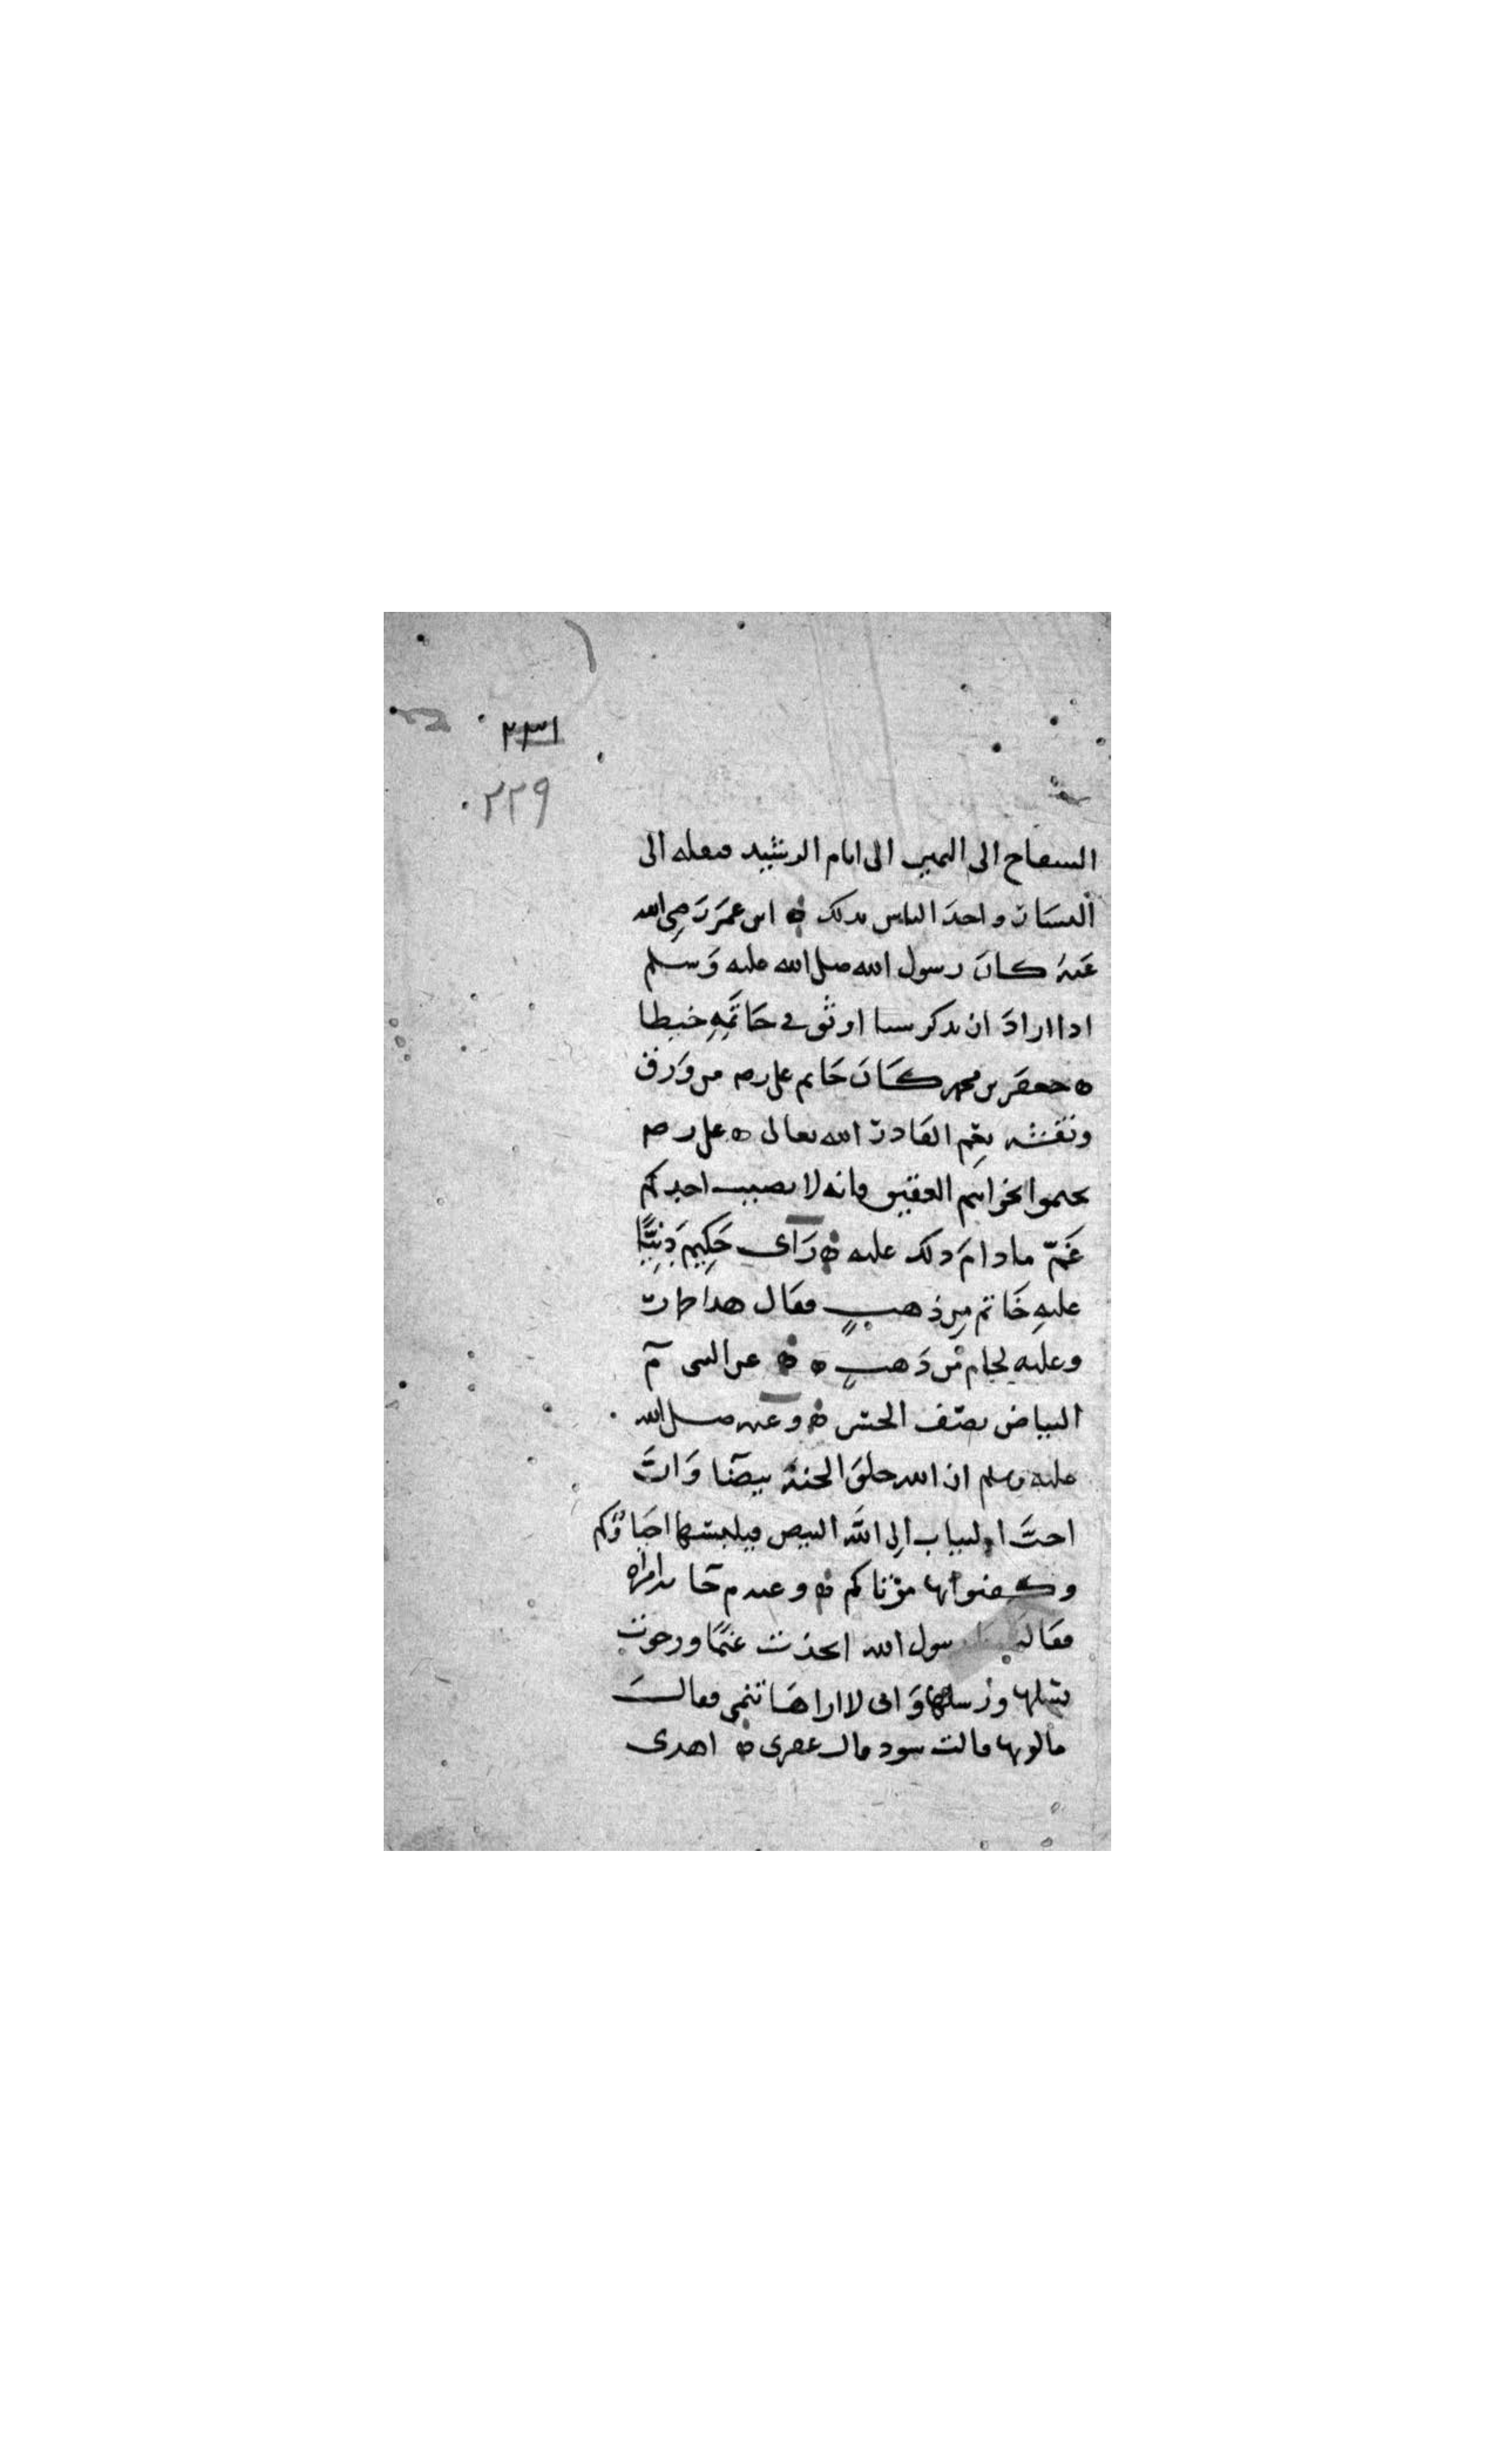 ٢٣١
٢٢٩
السفاح الى اليمين الى ايام الرشيد فنقله الى
اليسار واخذ الناس بذلك ه ابن عمر رضي الله
عنه كان رسول الله صلى الله عليه وسلم
اذا اراد ان يذكر شيا اوثق في خاتمه خيطا
ه جعفر بن محمد كان خاتم علي رضه من ورق
ونقشه نعم القادر الله تعالى ه علي رضه
تختموا بخواتيم العقيق فانه لا يصيب احدكم
غم ما دام ذلك عليه ه راى حكيم دنيّا
عليه خاتم من ذهب فقال هذا حمار
وعليه لجام من ذهب ه ه عن النبي م
البياض نصف الحسن ه وعنه صلى الله
عليه وسلم ان الله خلق الجنة بيضا وان
احب الثياب الى الله البيض فيلبسها احياؤكم
وكفنوا بها موتاكم ه وعنه م جاءته امراة
فقالت يا رسول الله اتخذت غنما ورجوت
نسلها ورسلها واني لا اراها تنمي فقال
ما لونها قالت سود قال عفري ه اهدى